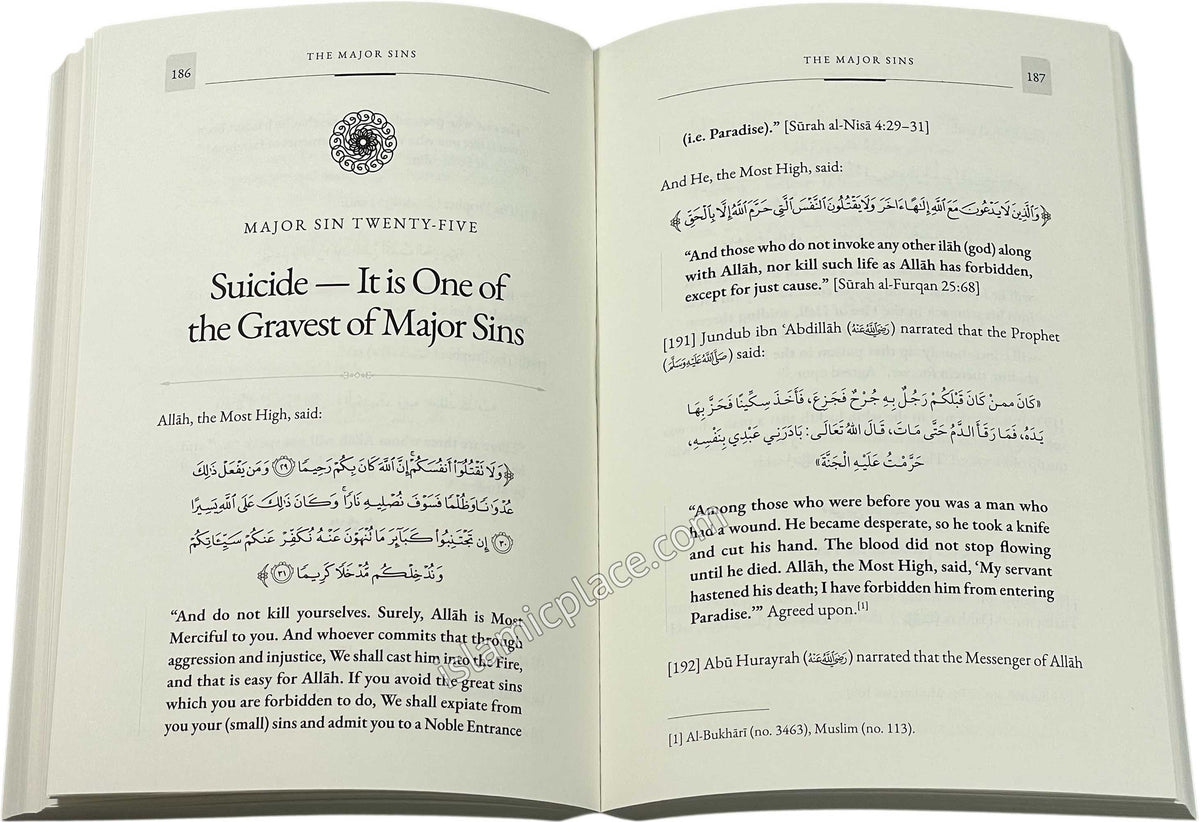 186
THE MAJOR SINS
MAJOR SIN TWENTY-FIVE
Suicide — It is One of
the Gravest of Major Sins
Allāh, the Most High, said:
﴿وَلَا تَقْتُلُوٓا۟ أَنفُسَكُمْ ۚ إِنَّ ٱللَّهَ كَانَ بِكُمْ رَحِيمًا ۝٢٩ وَمَن يَفْعَلْ ذَٰلِكَ
عُدْوَٰنًا وَظُلْمًا فَسَوْفَ نُصْلِيهِ نَارًا ۚ وَكَانَ ذَٰلِكَ عَلَى ٱللَّهِ يَسِيرًا
۝٣٠ إِن تَجْتَنِبُوا۟ كَبَآئِرَ مَا تُنْهَوْنَ عَنْهُ نُكَفِّرْ عَنكُمْ سَيِّـَٔاتِكُمْ
وَنُدْخِلْكُم مُّدْخَلًا كَرِيمًا ۝٣١﴾
“And do not kill yourselves. Surely, Allāh is Most
Merciful to you. And whoever commits that through
aggression and injustice, We shall cast him into the Fire,
and that is easy for Allāh. If you avoid the great sins
which you are forbidden to do, We shall expiate from
you your (small) sins and admit you to a Noble Entrance
THE MAJOR SINS
187
(i.e. Paradise).” [Sūrah al-Nisā 4:29–31]
And He, the Most High, said:
﴿وَٱلَّذِينَ لَا يَدْعُونَ مَعَ ٱللَّهِ إِلَٰهًا ءَاخَرَ وَلَا يَقْتُلُونَ ٱلنَّفْسَ ٱلَّتِى حَرَّمَ ٱللَّهُ إِلَّا بِٱلْحَقِّ﴾
“And those who do not invoke any other ilāh (god) along
with Allāh, nor kill such life as Allāh has forbidden,
except for just cause.” [Sūrah al-Furqan 25:68]
[191] Jundub ibn ‘Abdillāh (رَضِيَ اللَّهُ عَنْهُ) narrated that the Prophet
(صَلَّى اللَّهُ عَلَيْهِ وَسَلَّمَ) said:
«كَانَ ممنْ كَانَ قَبْلَكُمْ رَجُلٌ بِهِ جُرْحٌ فَجَزِعَ، فَأَخَذَ سِكِّينًا فَحَزَّ بِهَا
يَدَهُ، فَمَا رَقَأَ الدَّمُ حَتَّى مَاتَ، قَالَ اللهُ تَعَالَى: بَادَرَنِي عَبْدِي بِنَفْسِهِ،
حَرَّمْتُ عَلَيْهِ الْجَنَّةَ»
“Among those who were before you was a man who
had a wound. He became desperate, so he took a knife
and cut his hand. The blood did not stop flowing
until he died. Allāh, the Most High, said, ‘My servant
hastened his death; I have forbidden him from entering
Paradise.’” Agreed upon.[1]
[192] Abū Hurayrah (رَضِيَ اللَّهُ عَنْهُ) narrated that the Messenger of Allāh
[1] Al-Bukhārī (no. 3463), Muslim (no. 113).
islamicplace.com